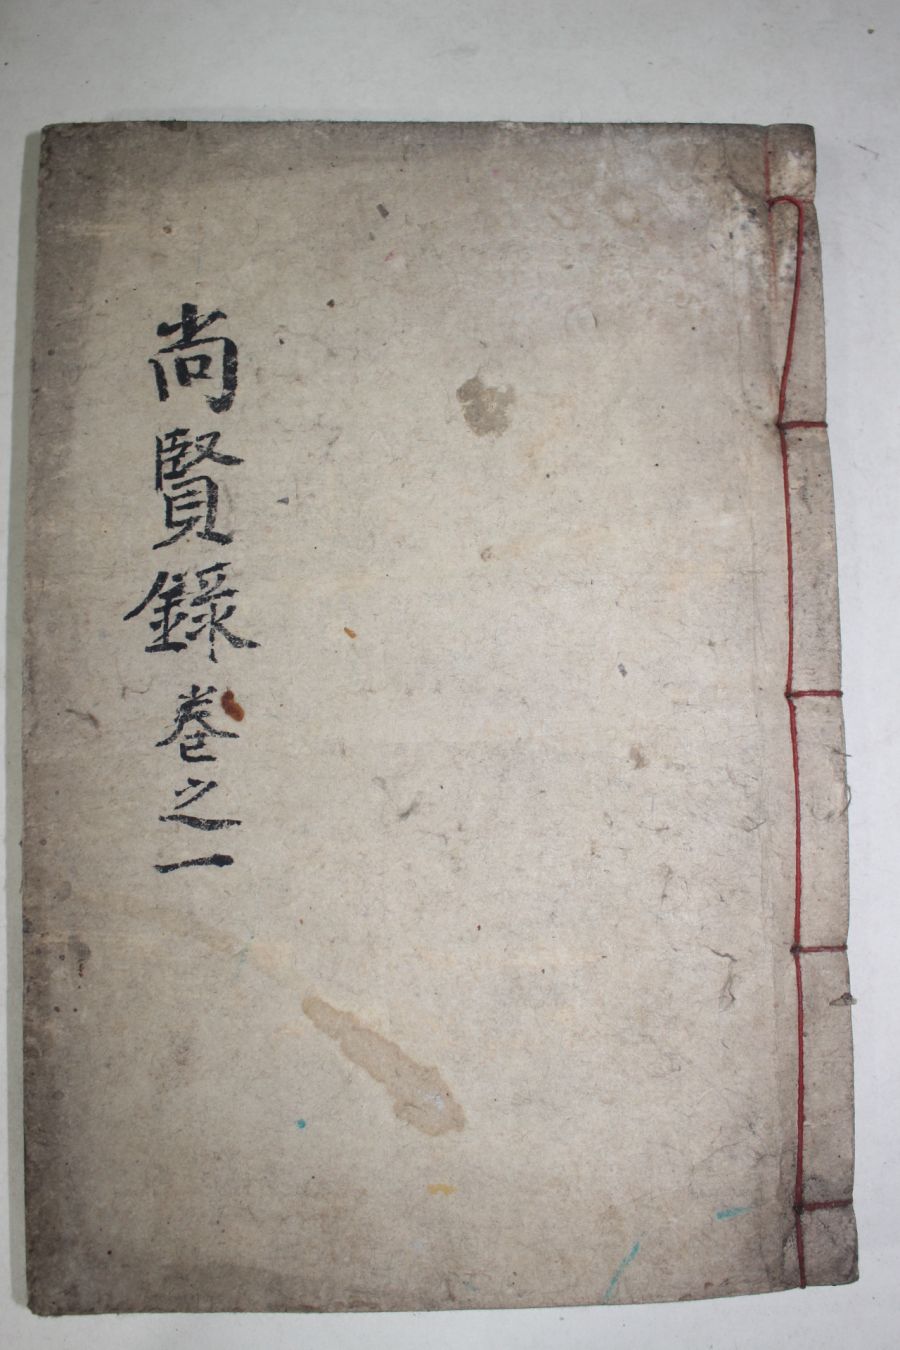 尚賢錄卷之一